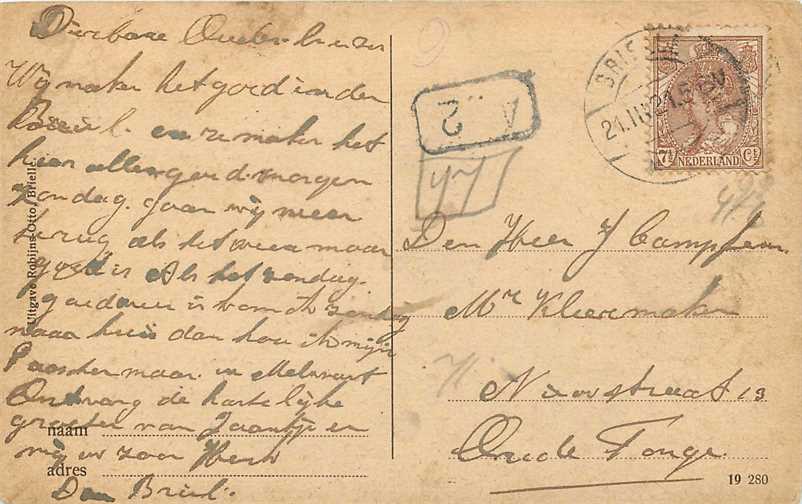 Dierbare Ouders
Wij maken het goed in den
Briel. en ze maken het
hier allen goed. morgen
zondag. gaan wij weer
terug als het weer maar
goed is Als het zondag
weer is kom ik zondag
naar huis dan hou ik mijn
Paaschen maar in
Ontvang de hartelijke
groeten van Jaantje en
mij uw zoon
Den Briel.
naam
adres
Uitgave Robijns-Otto, Brielle.
A 2
47
BRIELLE
24.III 21.5-6N
7½ NEDERLAND Ct
Den Heer J Campfens
Mr Kleermaker
Nieuwstraat 13
Oude Tonge.
19 280